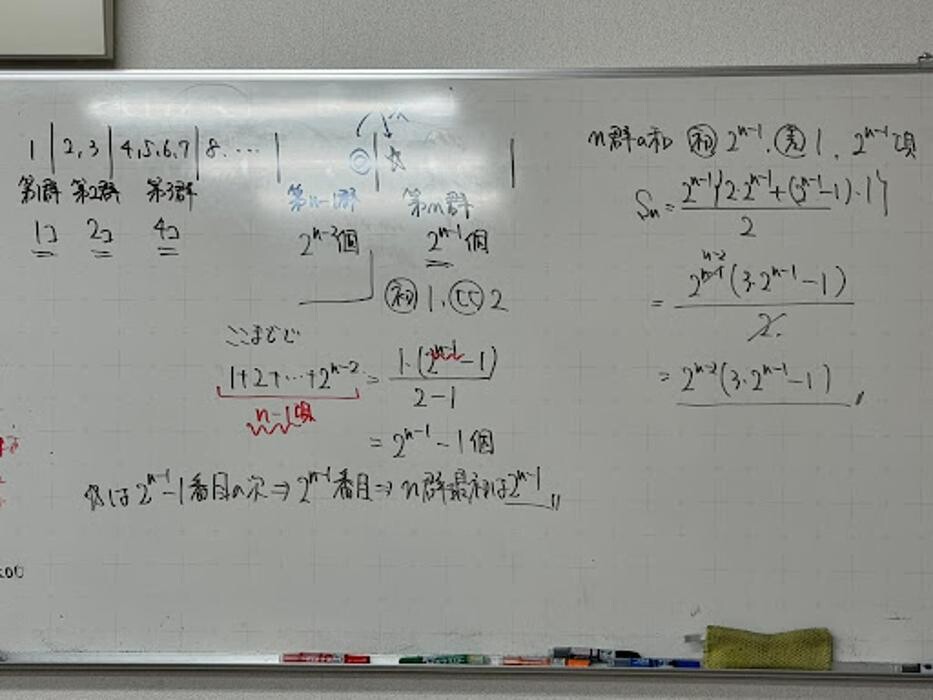 1 | 2, 3 | 4, 5, 6, 7 | 8, ‥‥ | ◎ | ☆ |
第1群 第2群 第3群 第n-1群 第n群
1コ 2コ 4コ 2^{n-2}個 2^{n-1}個
初 1, 比 2
ここまでで
1+2+…+2^{n-2} = \frac{1・(2^{n-1}-1)}{2-1}
n-1項
= 2^{n-1}-1個
☆は2^{n-1}-1番目の次⇒2^{n-1}番目⇒n群最初は2^{n-1}〃
n群の和 初 2^{n-1}, 差 1, 2^{n-1}項
Sn = \frac{2^{n-1}{2・2^{n-1}+(2^{n-1}-1)・1}}{2}
= \frac{2^{n-2}(3・2^{n-1}-1)}{2}
= 2^{n-2}(3・2^{n-1}-1)〃
:00